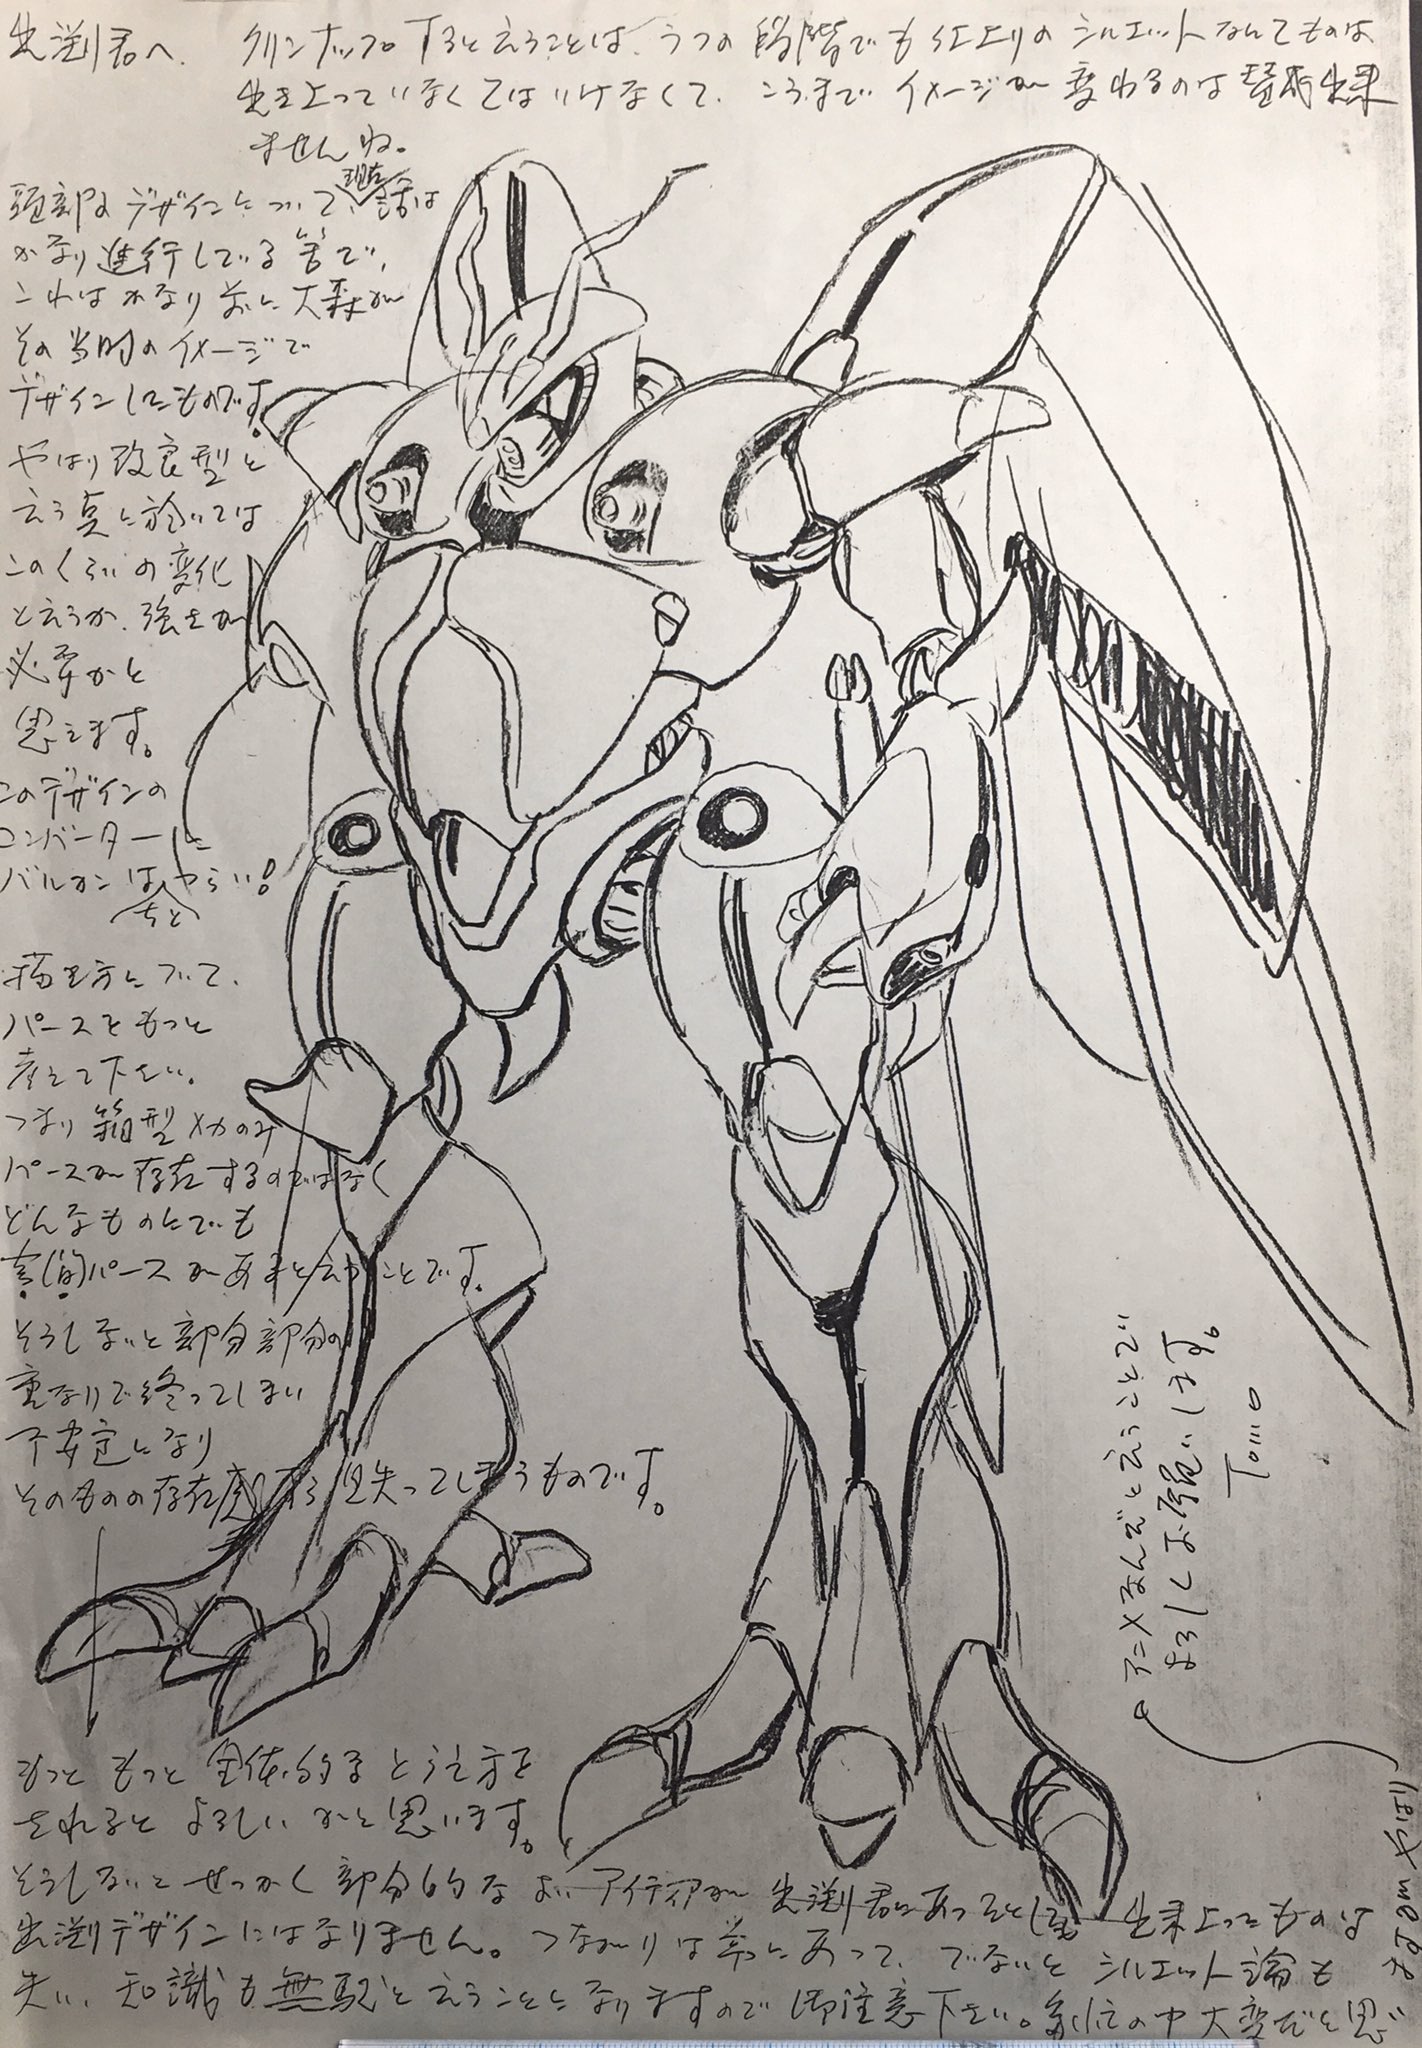 出渕君へ。 クリンナップするとえうことは、うつの段階でも仕上りのシルエットなんてものは
出き上っていなくてはいけなくて、こうまでイメージが変わるのは賛成出来
ませんね。
頭部のデザインについて、現在話は
かなり進行している筈で、
これはかなり前に大森が
その当時のイメージで
デザインしたものです。
やはり改良型と
えう点に於いては
このくらいの変化
とえうか、強さが
必要かと
思えます。
このデザインの
コンバーターに
バルカンはちとつらい!
描き方について、
パースをもっと
考えて下さい。
つまり箱型メカのみ
パースが存在するのではなく
どんなものにでも
パースがあるとえうことです。
そうしないと部分部分の
重なりで終ってしまい
不安定になり
そのものの存在感すら見失ってしまうものです。
もっともっと全体的なとらえ方を
されるとよろしいかと思います。
そうしないとせっかく部分的なよいアイディアが出渕君にあったとしても出来上ったものは
出渕デザインにはなりません。つながりは常にあって、でないとシルエット論も
失い、知識も無駄とえうことになりますので御注意下さい。多忙の中大変だと思い
ますがやはり
アニメなんぞとえうことでい
よろしくお願いします。
Tomo